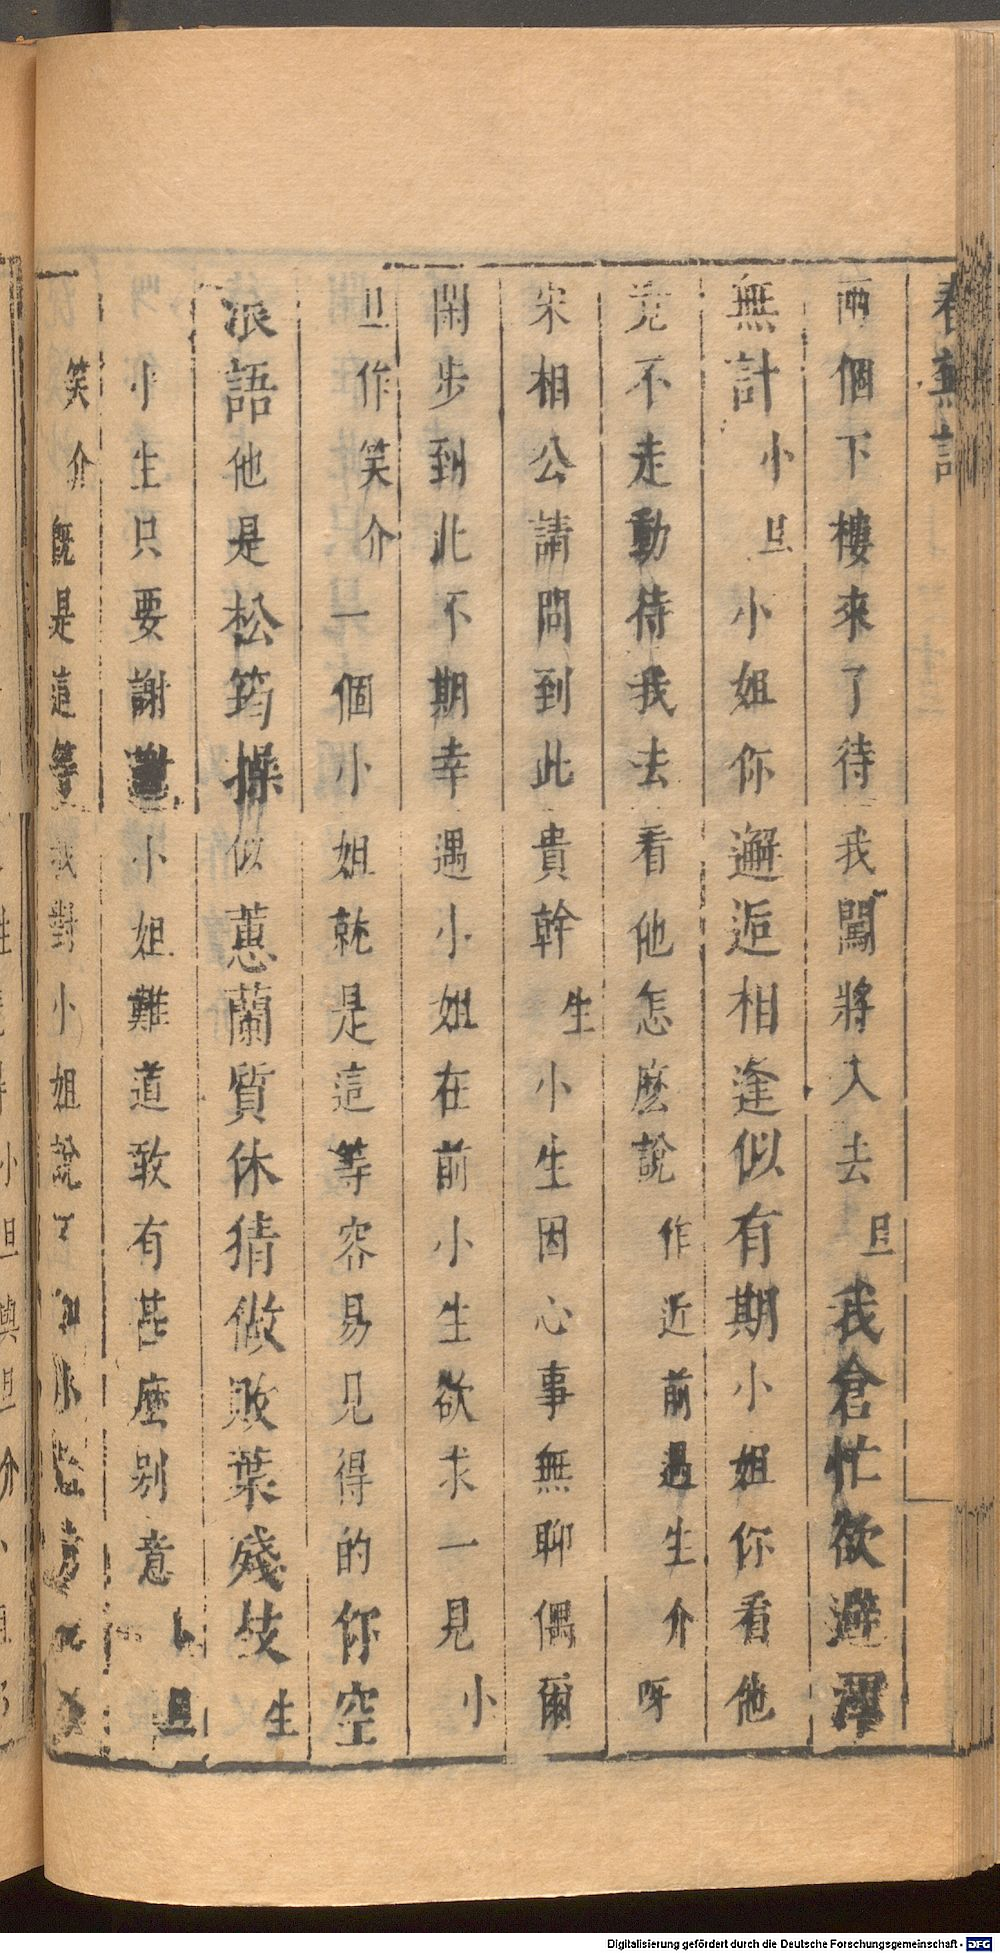 春蕪記
兩個下樓來了待我闖將入去旦我倉忙欲避渾
無計小旦小姐你邂逅相逢似有期小姐你看他
竟不走動待我去看他怎麽說作近前遇生介呀
宋相公請問到此貴幹生小生因心事無聊偶爾
閑步到此不期幸遇小姐在前小生欲求一見小
旦作笑介一個小姐就是這等容易見得的你空
浪語他是松筠操似蕙蘭質休猜做敗葉殘枝生
小生只要謝謝小姐難道敢有甚麽别意旦
笑介旣是這等我對小姐說了
小旦與旦介
Digitalisierung gefördert durch die Deutsche Forschungsgemeinschaft - DFG